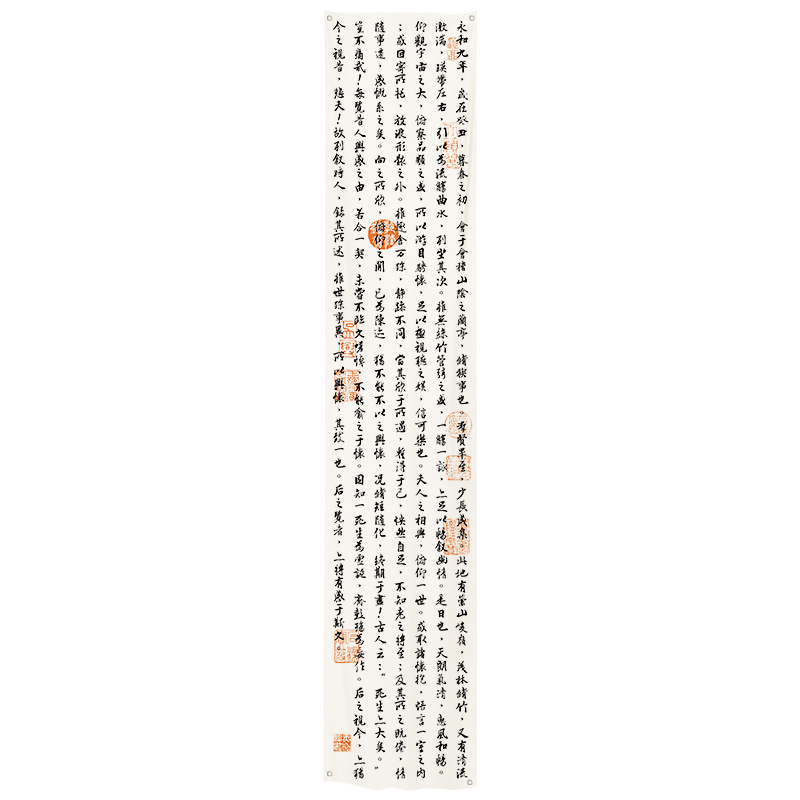 永和九年，歲在癸丑，暮春之初，會于會稽山陰之蘭亭，脩禊事也。羣賢畢至，少長咸集。此地有崇山峻嶺，茂林脩竹，又有清流
激湍，暎帶左右，引以為流觴曲水，列坐其次。雖無絲竹管弦之盛，一觴一詠，亦足以暢敘幽情。是日也，天朗氣清，惠風和暢。
仰觀宇宙之大，俯察品類之盛，所以游目騁懷，足以極視聽之娛，信可樂也。夫人之相與，俯仰一世。或取諸懷抱，悟言一室之內
；或因寄所托，放浪形骸之外。雖趣舍万殊，靜躁不同，當其欣于所遇，暫得于己，快然自足，不知老之將至；及其所之既倦，情
隨事遷，感慨系之矣。向之所欣，俯仰之間，已為陳迹，猶不能不以之興懷，況脩短隨化，終期于盡！古人云：“死生亦大矣。”
豈不痛哉！每覽昔人興感之由，若合一契，未嘗不臨文嗟悼，不能喻之于懷。固知一死生為虛誕，齊彭殤為妄作。后之視今，亦猶
今之視昔，悲夫！故列敘時人，錄其所述，雖世殊事異，所以興懷，其致一也。后之覽者，亦將有感于斯文。